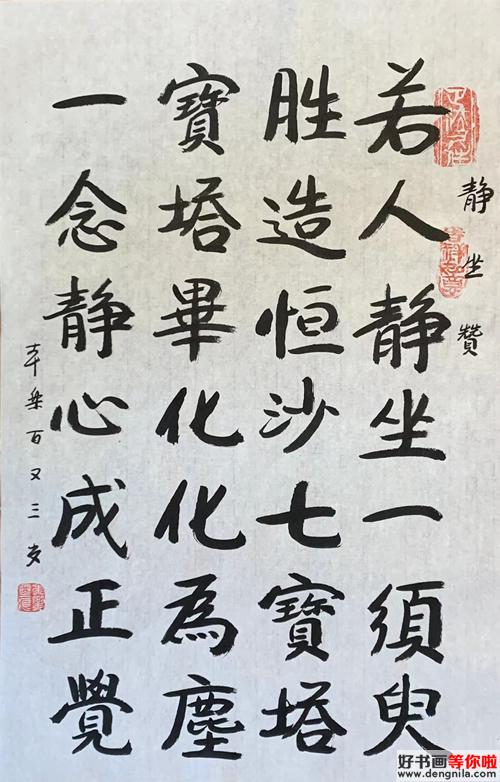 静坐贊
若人静坐一須臾
胜造恒沙七寶塔
寶塔畢化化為塵
一念静心成正覺
百又三岁
好书画等你啦
www.dengnila.com